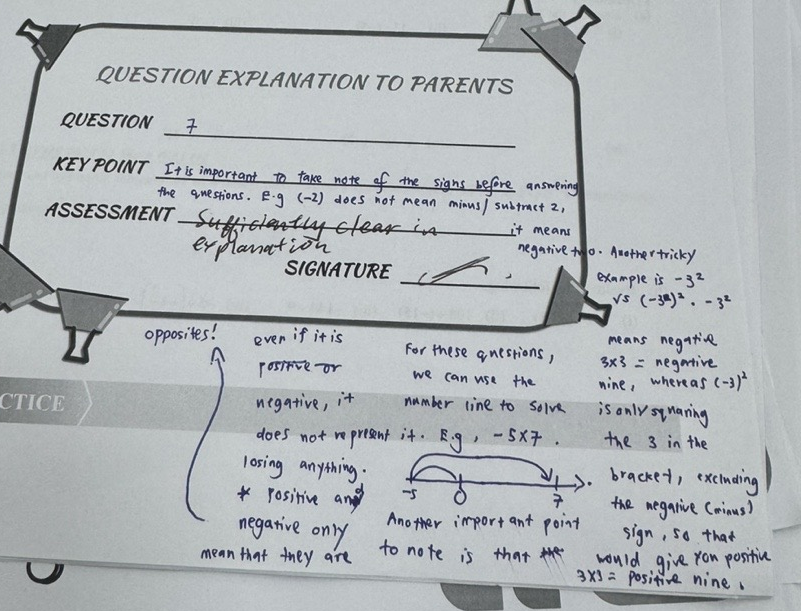 QUESTION EXPLANATION TO PARENTS
QUESTION 7
KEY POINT It is important to take note of the signs before answering
the questions. E.g (-2) does not mean minus/subtract 2,
ASSESSMENT Sufficiently clear in
it means
explanation
negative two. Another tricky
SIGNATURE
example is -3²
vs (-3)². -3²
means negative
3x3 = negative
nine, whereas (-3)²
is only squaring
the 3 in the
bracket, excluding
the negative (minus)
sign, so that
would give you positive
3x3 = positive nine.
For these questions,
we can use the
number line to solve
it. E.g, -5x7.
-5 0 7
Another important point
to note is that the
even if it is
positive or
negative, it
does not represent
losing anything.
* Positive and
negative only
mean that they are
opposites!
CTICE